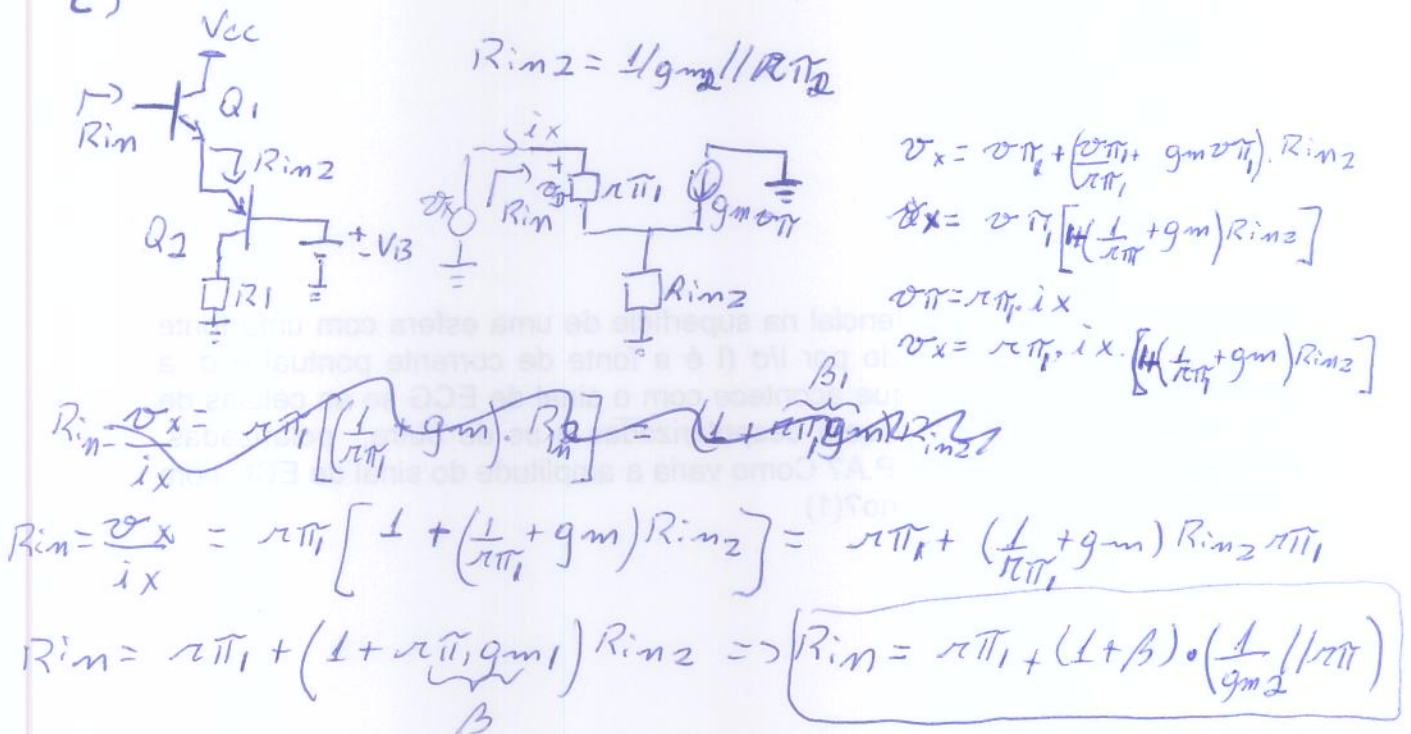 c)
Vcc
Rin2 = 1/gm2//rπ2
Q1
Rin
Rin2
Q2
± VB
R1
ix
+
vx
Rin
vπ
rπ1
gmvπ
Rin2
vx = vπ1 + (vπ1/rπ1 + gmvπ1).Rin2
vx = vπ1[1+(1/rπ + gm)Rin2]
vπ = rπ1.ix
vx = rπ1.ix.[1+(1/rπ1 + gm)Rin2]
Rin = vx/ix = rπ1[(1/rπ1 + gm)
β1
Rin = vx/ix = rπ1[1 + (1/rπ1 + gm)Rin2] = rπ1 + (1/rπ1 + gm)Rin2 rπ1
Rin = rπ1 + (1 + rπ1gm1)Rin2 => Rin = rπ1 + (1+β).(1/gm2//rπ)
β